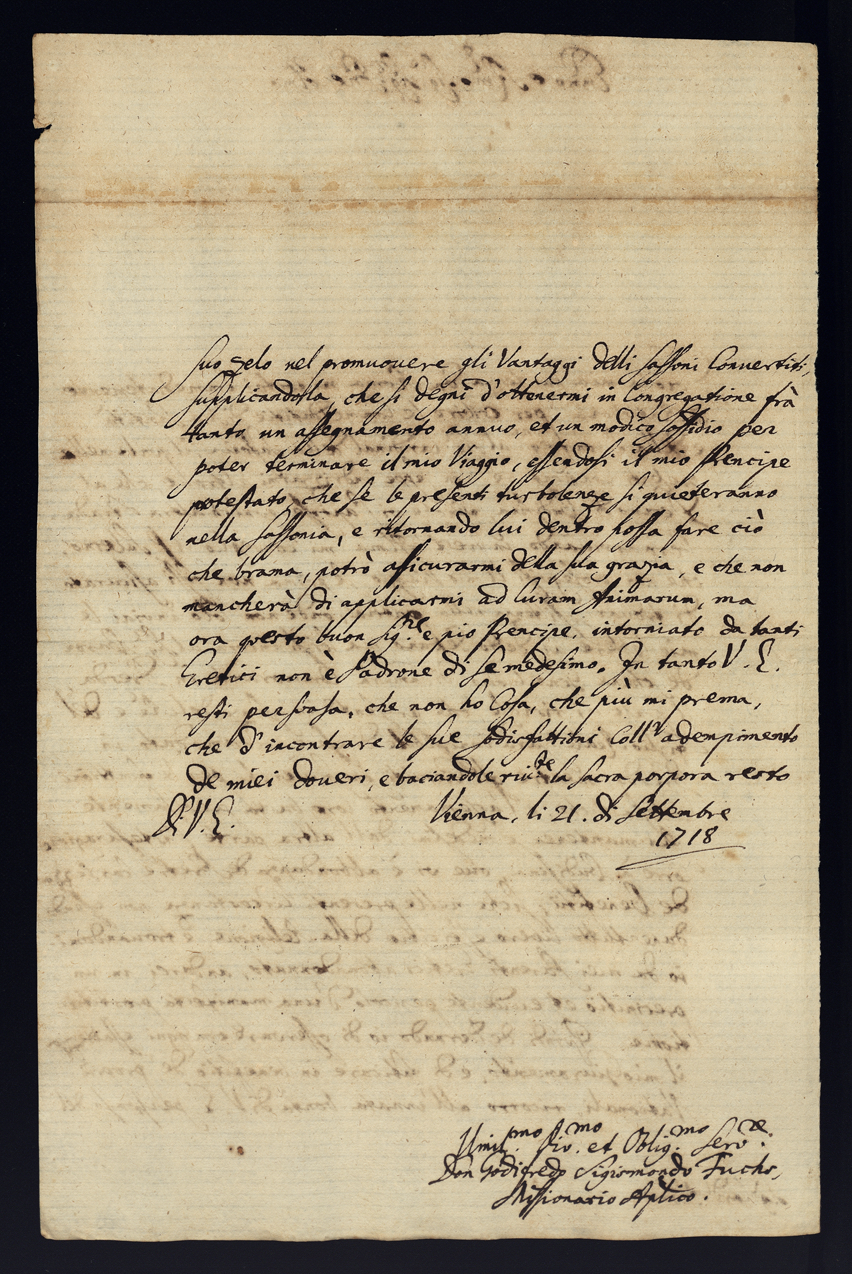 suo zelo nel promuovere gli Vantaggi delli Sassoni Convertiti,
supplicandola, che si degni d'ottenermi in Congregatione frà
tanto un assegnamento annuo, et un modico sossidio per
poter terminare il mio Viaggio, essendosi il mio Prencipe
protestato che se le presenti turbolenze si quieteranno
nella Sassonia, e ritornando lui dentro possa fare ciò
che brama, potrò assicurarmi della sua grazia, e che non
mancherà di applicarmi ad Curam Animarum, ma
ora questo buon Sig.re e pio Prencipe, intorniato da tanti
Eretici non è Padrone di se medesimo. In tanto V. E.
resti persuasa, che non ho Cosa, che più mi prema,
che d'incontrare le sue sodisfattioni coll' adempimento
de miei doveri, e baciandole riv.te la sacra porpora resto
Di V. E. Vienna, li 21. di Settembre
1718
Umil.mo Div.mo et Oblig.mo Serv.re
Don Godifredo Sigismondo Fuchs,
Missionario Aplico.